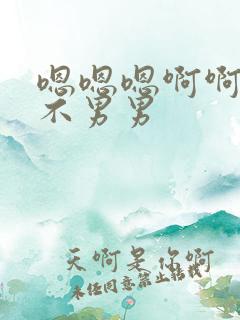 嗯嗯嗯啊啊
不男男
天啊是你啊
未经同意禁止转载